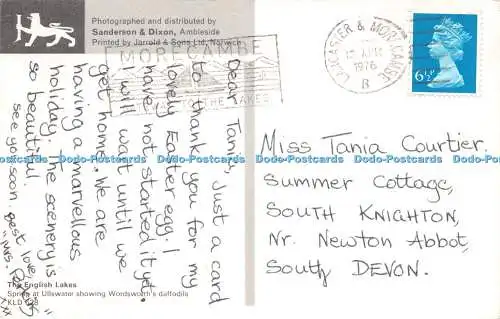 Photographed and distributed by
Sanderson & Dixon, Ambleside
Printed by Jarrold & Sons Ltd, Norwich
MORECAMBE
TO THE LAKES
LANCASTER & MORECAMBE
1976
B
6½P
Dear Tania, Just a card
to thank you for my
lovely Easter egg. I
have not started it yet.
I will wait until we
get home. We are
having a marvellous
holiday. The scenery is
so beautiful.
see you soon. best love,
"Mrs.
xxx
Miss Tania Courtier,
Summer Cottage,
SOUTH KNIGHTON,
Nr. Newton Abbot,
South DEVON.
The English Lakes
Spring at Ullswater showing Wordsworth's daffodils
Dodo-Postcards Dodo-Postcards Dodo-Postcards Dodo-Postcards Dodo-Postcards Dodo-Postcards